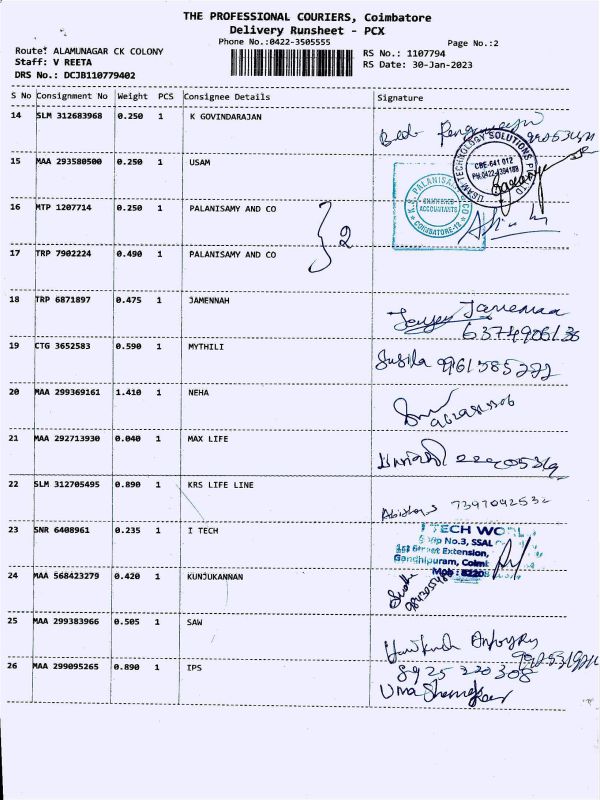 THE PROFESSIONAL COURIERS, Coimbatore
Delivery Runsheet - PCX
Phone No.:0422-3505555
Page No.:2
Route: ALAMUNAGAR CK COLONY
RS No.: 1107794
Staff: V REETA
RS Date: 30-Jan-2023
DRS No.: DCJB110779402
S No Consignment No Weight PCS Consignee Details Signature
14 SLM 312683968 0.250 1 K GOVINDARAJAN
15 MAA 293580500 0.250 1 USAM
USAM TECHNOLOGY SOLUTIONS
CBE-641 012
16 MTP 1207714 0.250 1 PALANISAMY AND CO
PALANISAMY
CHARTERED
ACCOUNTANTS
COIMBATORE-12
2
17 TRP 7902224 0.490 1 PALANISAMY AND CO
18 TRP 6871897 0.475 1 JAMENNAH
19 CTG 3652583 0.590 1 MYTHILI
Susila
20 MAA 299369161 1.410 1 NEHA
21 MAA 292713930 0.040 1 MAX LIFE
22 SLM 312705495 0.890 1 KRS LIFE LINE
7397042532
23 SNR 6408961 0.235 1 I TECH
I TECH
No.3, SSAL
1st Street Extension,
Gandhipuram,
24 MAA 568423279 0.420 1 KUNJUKANNAN
25 MAA 299383966 0.505 1 SAW
26 MAA 299095265 0.890 1 IPS
8925 220308
Uma